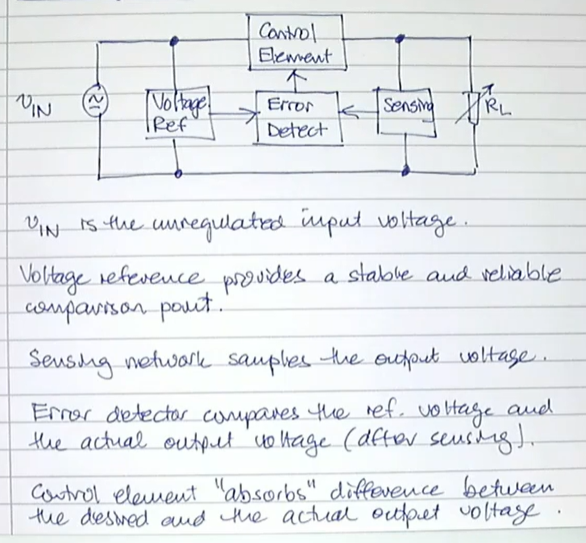 Control
Element
VIN
Voltage
Ref
Error
Detect
Sensing
RL
VIN is the unregulated input voltage.
Voltage reference provides a stable and reliable
comparison point.
Sensing network samples the output voltage.
Error detector compares the ref. voltage and
the actual output voltage (after sensing).
Control element "absorbs" difference between
the desired and the actual output voltage.